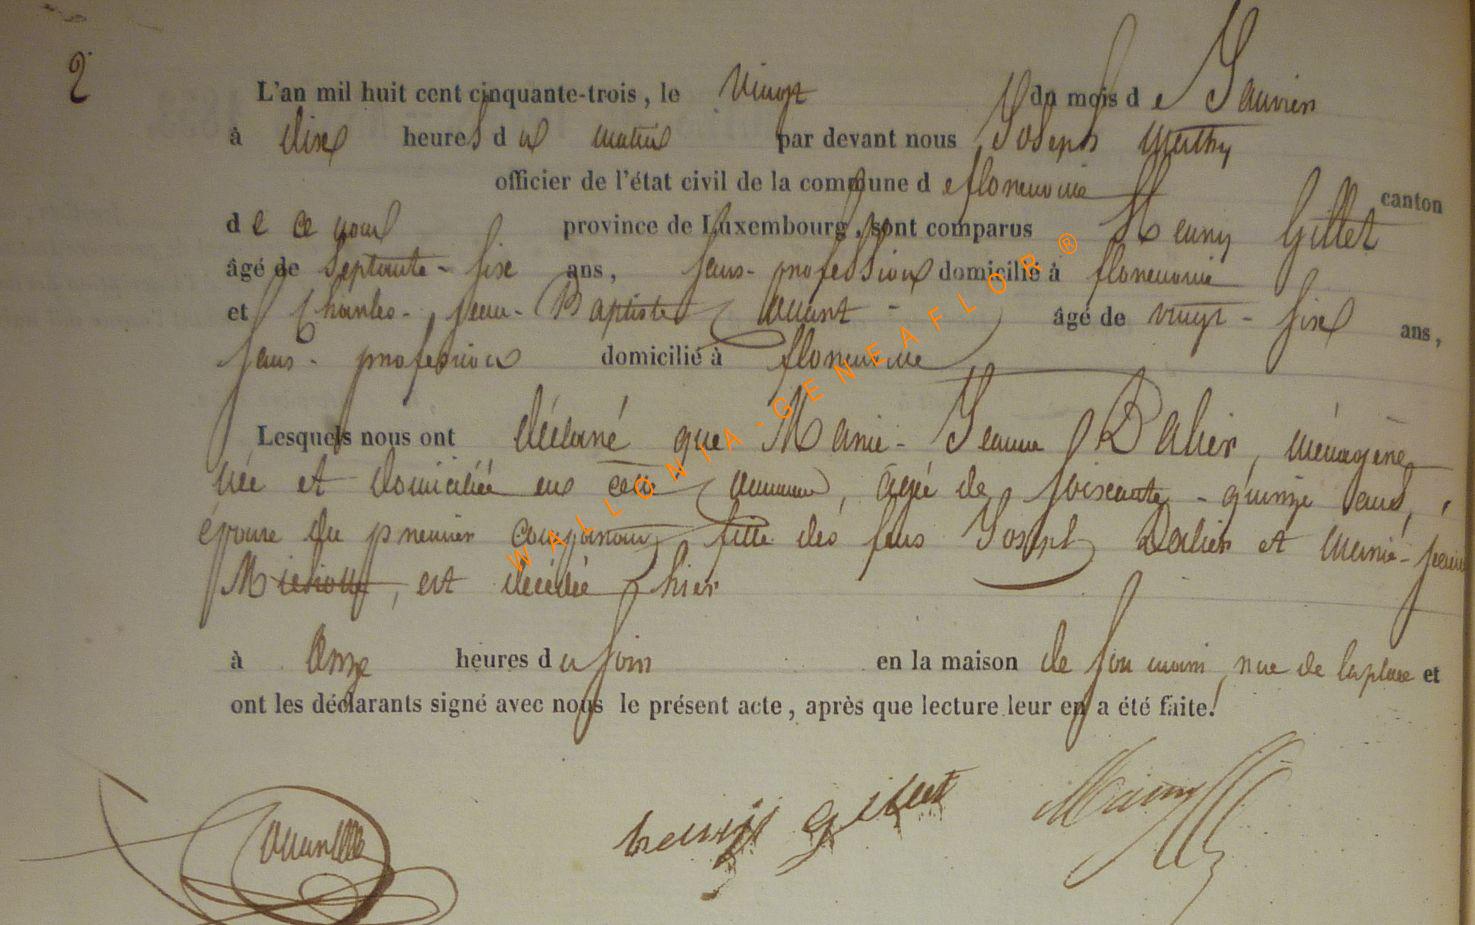 2
L'an mil huit cent cinquante-trois, le vingt du mois de Janvier
à dix heures du matin par devant nous Joseph
officier de l'état civil de la commune de florenville canton
de ce nom province de Luxembourg, sont comparus Henry Gillet
âgé de septante-six ans, sans-profession domicilié à florenville
et Charles-jean-Baptiste âgé de vingt-six ans,
sans-profession domicilié à florenville
Lesquels nous ont déclaré que Marie-Jeanne Dalier, ménagère
née et domiciliée en cette commune, âgée de soixante-quinze ans,
épouse du premier comparant, fille des feus Joseph Dalier et marie-jeanne
est décédée hier
à onze heures du soir en la maison de son mari, rue de la place et
ont les déclarants signé avec nous le présent acte, après que lecture leur en a été faite.
henry gillet
WALLONIA-GENEAFLOR®